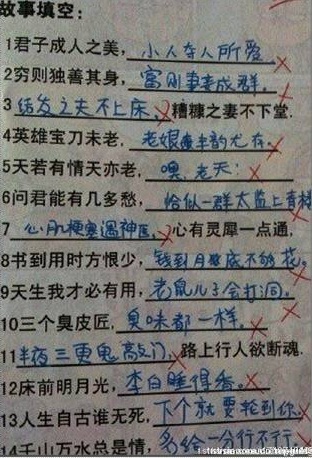 故事填空：
1君子成人之美，小人夺人所爱✗
2穷则独善其身，富则妻妾成群.✗
3 结发之夫不上床、✗糟糠之妻不下堂.
4英雄宝刀未老.老娘风韵尤存.✗
5天若有情天亦老，噢，老天.✗
6问君能有几多愁，恰似一群太监上青楼
7 心肌梗塞遇神医、✗心有灵犀一点通.
8书到用时方恨少，钱到月底不够花。✗
9天生我才必有用，老鼠儿子会打洞.✗
10三个臭皮匠，臭味都一样.✗
11半夜三更鬼敲门、✗路上行人欲断魂.
12床前明月光，李白睡得香。✗
13人生自古谁无死，下个就要轮到你.✗
14千山万水总是情，多给一分行不行.✗